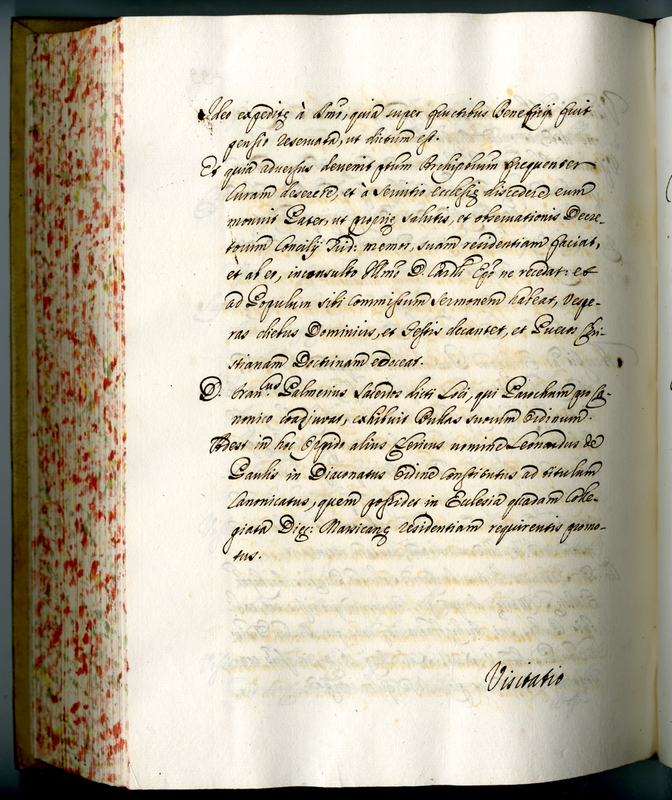 Ideo expeditę à Dmo, quia super fructibus Beneficij fuit
pensio reservata, ut dictum est.
Et quia adversus devenit ptum Archiptrum frequenter
Curam deserere, et à Servitio Ecclesię discedere, eum
monuit Pater, ut proprię salutis, et observationis Decre-
torum Concilij Trid: memor, suam residentiam faciat,
et ab ea, inconsulto Illmo D. Cardli Epo ne recedat: et
ad Populum sibi Commissum Sermonem habeat, Vespe-
ras diebus Dominicis, et Festis decantet, et Pueros Chri-
stianam Doctrinam edoceat.
D. Fran.cus Palmerius Sacerdos dicti Loci, qui Parochum pro Ca-
nonico coadjuvat, exhibuit Bullas suorum Ordinum.
Adest in hoc Oppido alius Clericus nomine Leonardus de
Paulis in Diaconatus Ordine Constitutus ad titulum
Canonicatus, quem possidet in Eclesia quadam Colle-
giata Dięc: Marsicanę residentiam requirentis promo-
tus.
Visitatio